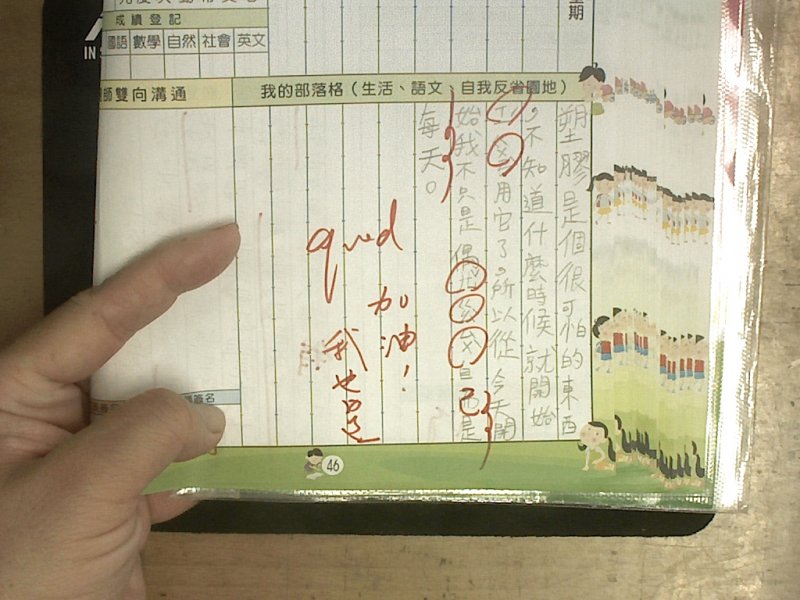 成績登記
國語 數學 自然 社會 英文
師雙向溝通
我的部落格(生活、語文、自我反省園地)
期
塑膠是個很可怕的東西
,不知道什麼時候就開始
用它了。所以從今天開
始我不只是偶
是
每天。
good
加油!
我也是
46